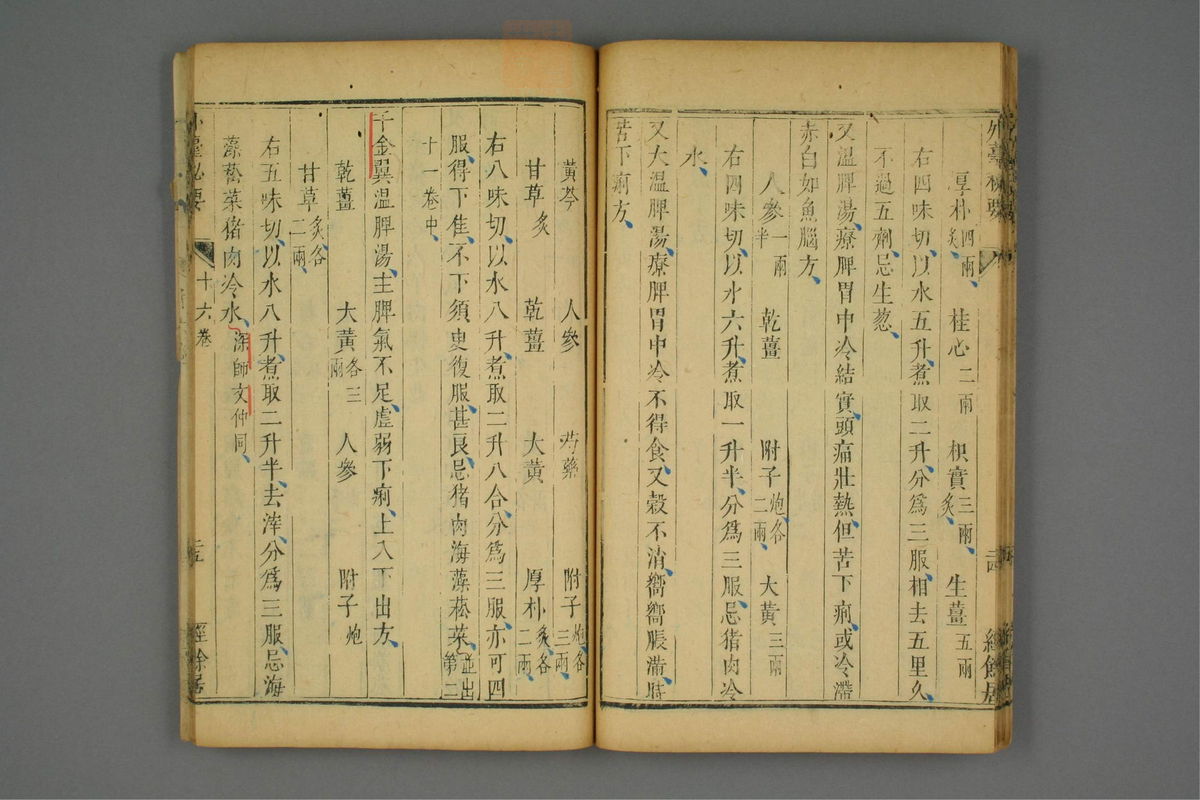 外臺秘要
二西
經餘居
厚朴四兩炙 桂心二兩 枳實三兩炙 生薑五兩
右四味切以水五升煮取二升分爲三服相去五里久
不過五劑忌生葱
又溫脾湯療脾胃中冷結實頭痛壯熱但苦下痢或冷滯
赤白如魚腦方
人參一兩半 乾薑 附子炮各二兩 大黃三兩
右四味切以水六升煮取一升半分爲三服忌猪肉冷
水
又大溫脾湯療脾胃中冷不得食又穀不消嚮嚮脹滿時
苦下痢方
黃芩 人參 芍藥 附子炮各三兩
甘草炙 乾薑 大黃 厚朴炙各二兩
右八味切以水八升煮取二升八合分爲三服亦可四
服得下佳不下須臾復服甚良忌猪肉海藻菘菜並出第二
十一卷中
千金翼溫脾湯主脾氣不足虛弱下痢上入下出方
乾薑 大黃各三兩 人參 附子炮
甘草炙各二兩
右五味切以水八升煮取二升半去滓分爲三服忌海
藻菘菜猪肉冷水深師文仲同
外臺秘要 十六卷 二五 經餘居